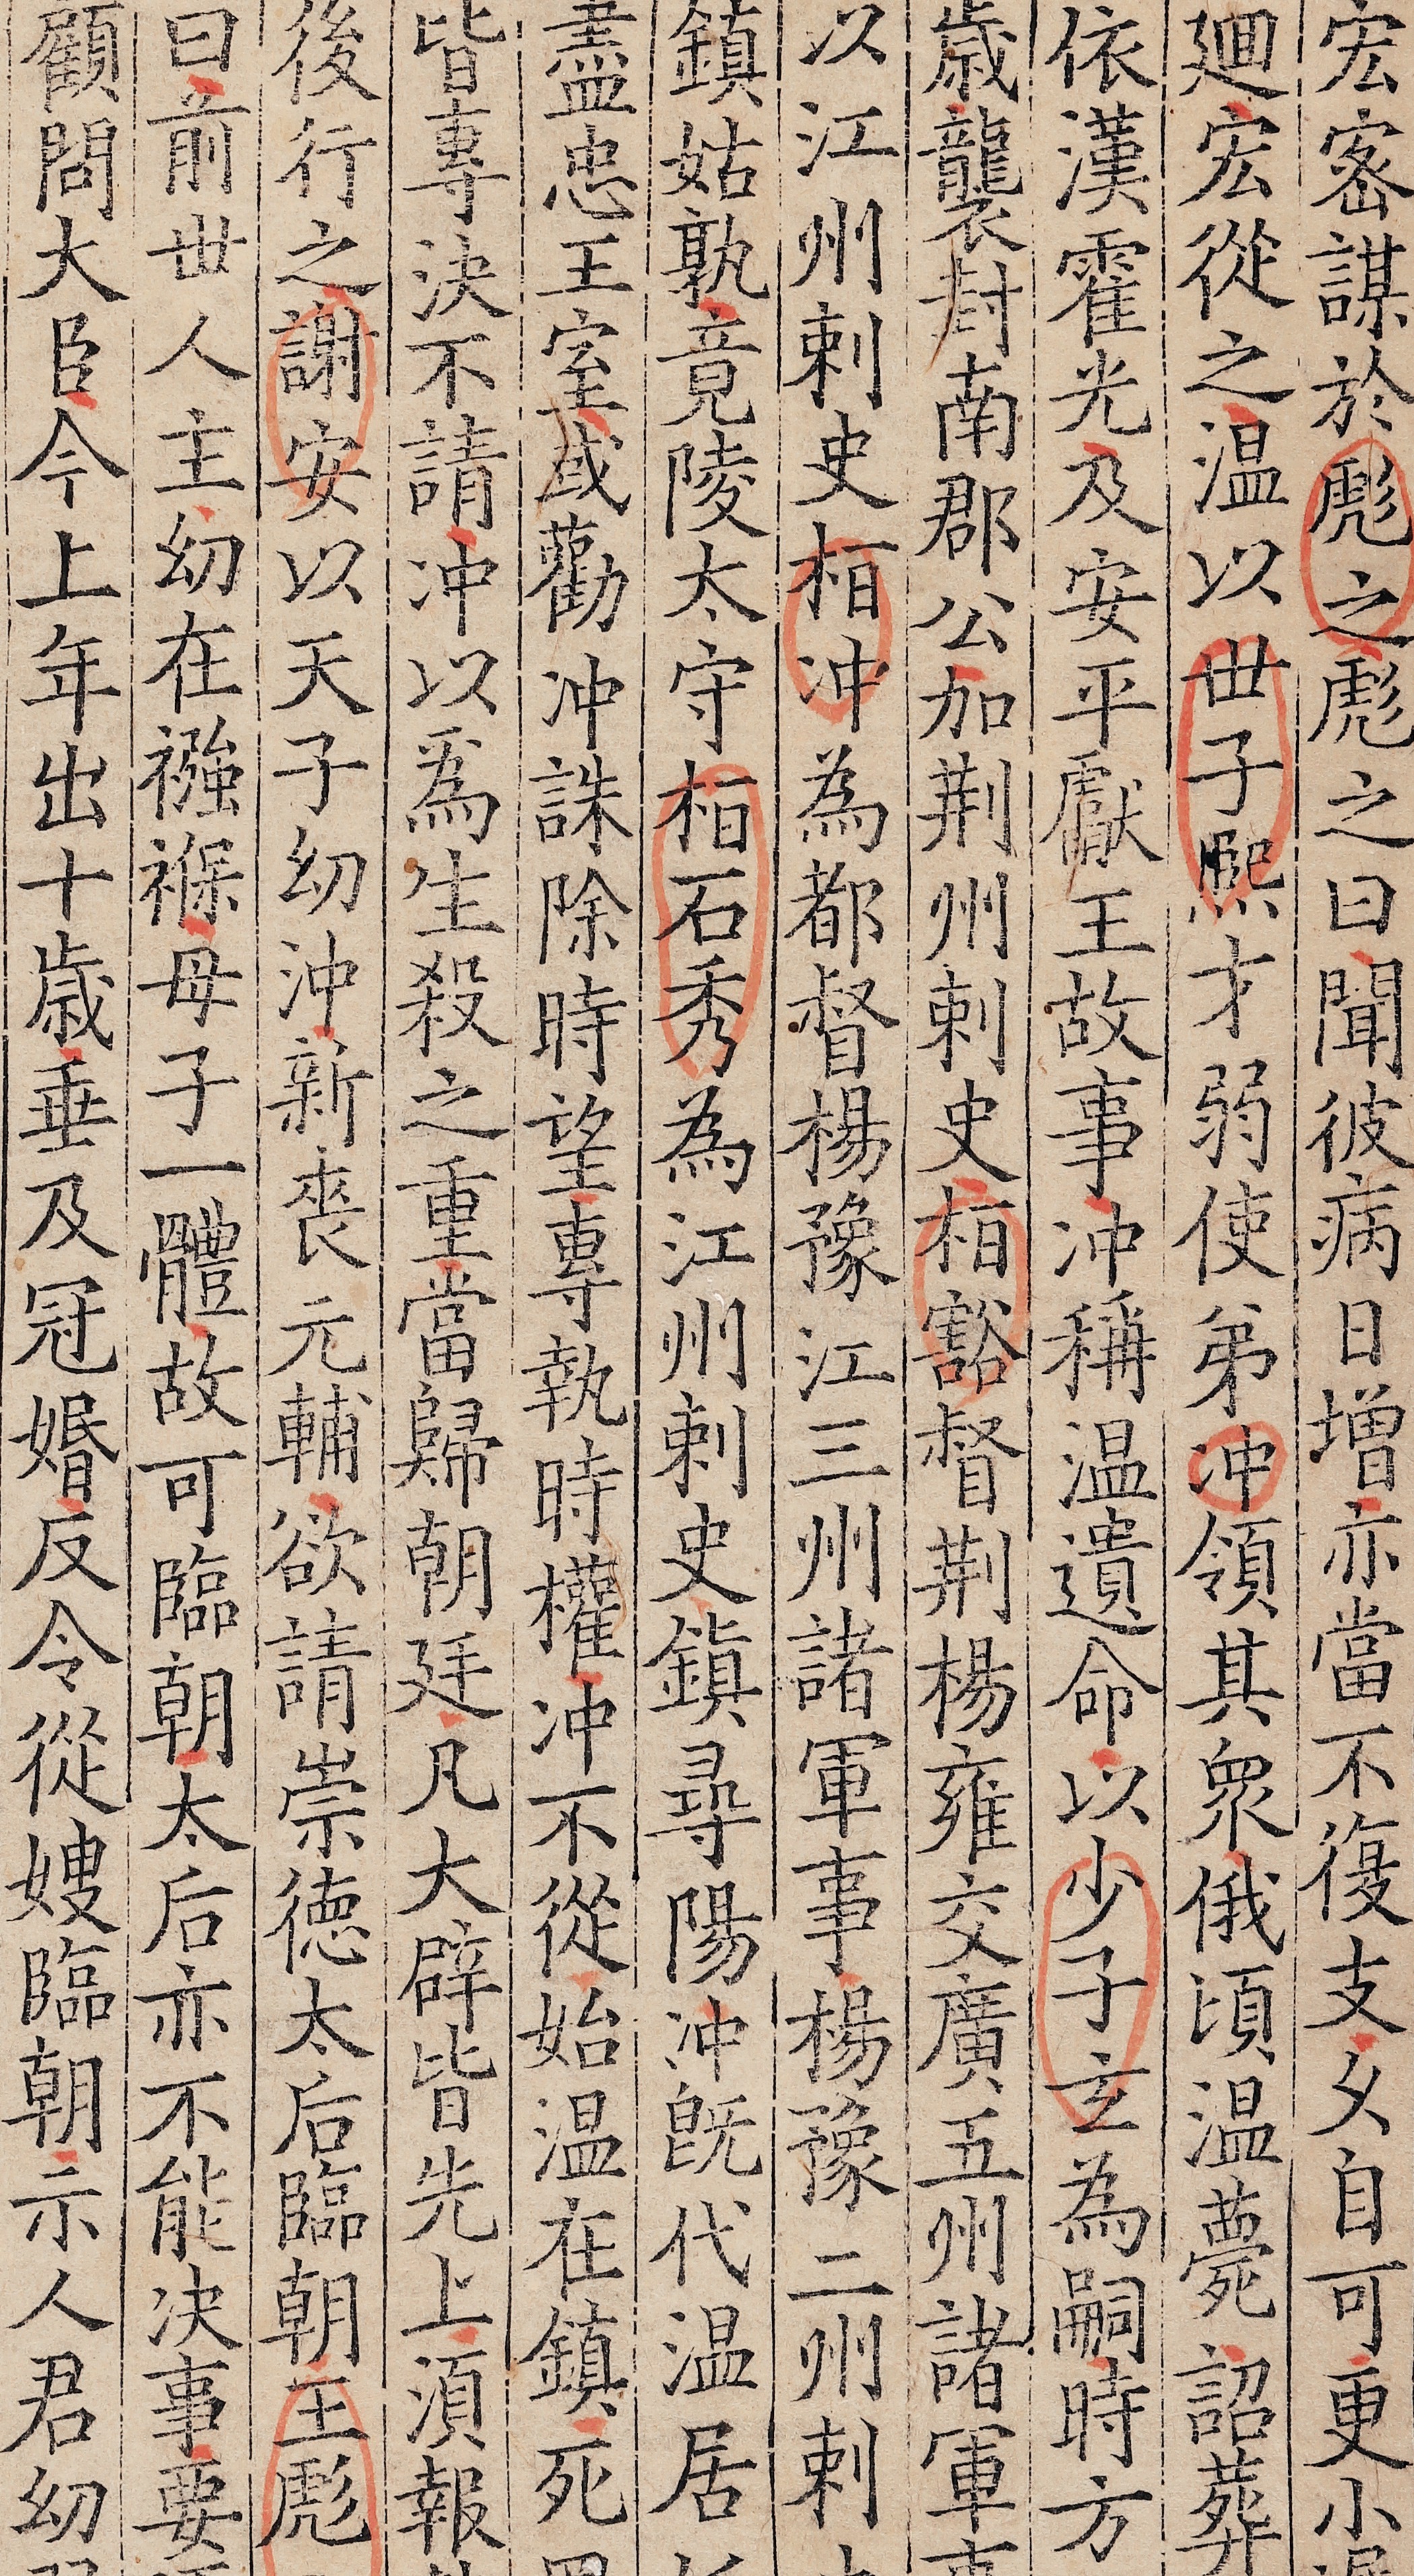 宏密謀於彪之彪之曰聞彼病日增亦當不復支久自可更小
廻宏從之温以世子熙才弱使弟冲領其眾俄頃温薨詔葬
依漢霍光及安平獻王故事冲稱温遺命以少子玄為嗣時方
歳襲封南郡公加荆州刺史桓豁督荆楊雍交廣五州諸軍事
以江州刺史桓冲為都督楊豫江三州諸軍事楊豫二州刺
鎮姑孰竟陵太守桓石秀為江州刺史鎮尋陽冲旣代温居
盡忠王室或勸冲誅除時望專執時權冲不從始温在鎮死
皆專決不請冲以為生殺之重當歸朝廷凡大辟皆先上湏報
後行之謝安以天子幼沖新喪元輔欲請崇德太后臨朝王彪
曰前世人主幼在襁褓母子一體故可臨朝太后亦不能決事要
顧問大臣今上年出十歳垂及冠婚反令從嫂臨朝示人君幼